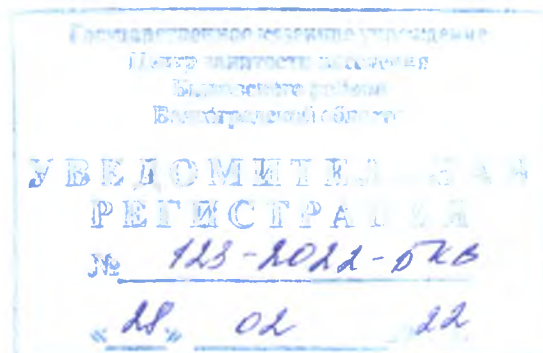 Государственное казенное учреждение
Центр занятости населения
района
Волгоградской области
УВЕДОМИТЕЛЬНАЯ
РЕГИСТРАЦИЯ
№ 123-2022-
« 28 » 02 22